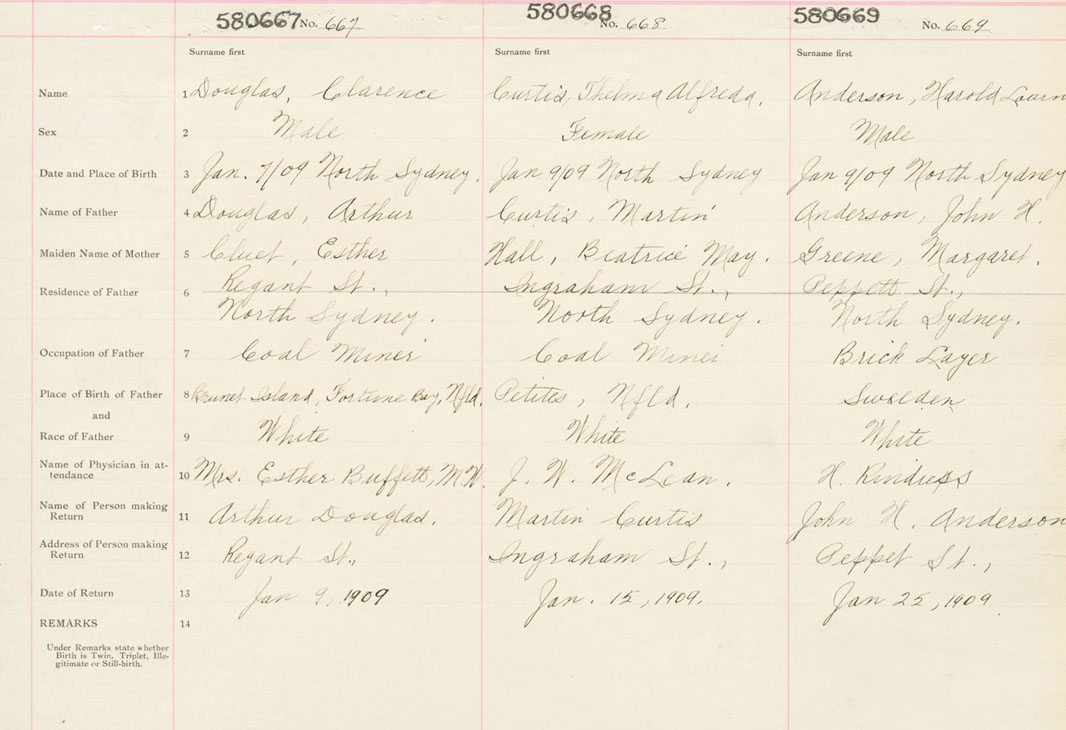 580667 No. 667 580668 No. 668 580669 No. 669
Surname first Surname first Surname first
Name 1 Douglas, Clarence Curtis, Thelma Alfreda, Anderson, Harold
Sex 2 Male Female Male
Date and Place of Birth 3 Jan. 7/09 North Sydney. Jan 9/09 North Sydney Jan 9/09 North Sydney
Name of Father 4 Douglas, Arthur Curtis, Martin Anderson, John H.
Maiden Name of Mother 5 Cluet, Esther Hall, Beatrice May. Greene, Margaret.
Regant St., Ingraham St., Peppett St.,
Residence of Father 6
North Sydney. North Sydney. North Sydney.
Occupation of Father 7 Coal Miner Coal Miner Brick Layer
Place of Birth of Father 8 Brunet Island, Fortune Bay, Nfld. Petites, Nfld. Sweeden
and
Race of Father 9 White White White
Name of Physician in at-
tendance 10 Mrs. Esther Buffett, M.W. J. W. McLean. H. Rindress
Name of Person making
Return 11 Arthur Douglas. Martin Curtis John H. Anderson
Address of Person making
Return 12 Regant St., Ingraham St., Peppet St.,
Date of Return 13 Jan 9, 1909 Jan. 15, 1909. Jan 25, 1909
REMARKS 14
Under Remarks state whether
Birth is Twin, Triplet, Ille-
gitimate or Still-birth.